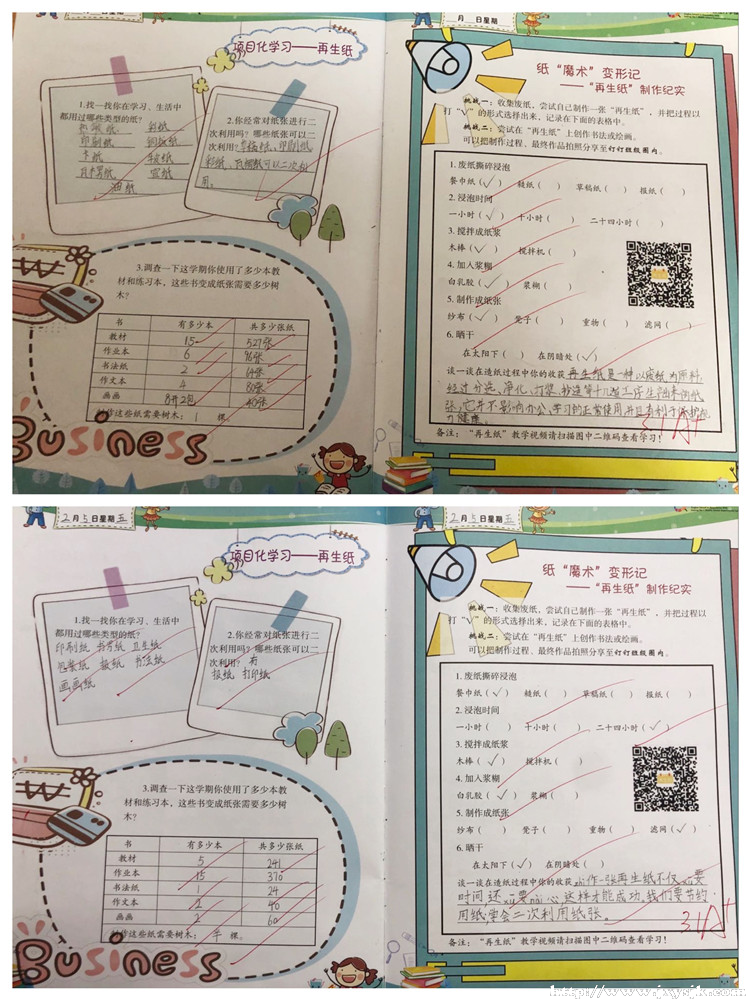 月 日星期
项目化学习——再生纸
1.找一找你在学习、生活中
都用过哪些类型的纸?
彩纸
印刷纸
卡纸
瓦楞纸 宣纸
油纸
2.你经常对纸张进行二
次利用吗?哪些纸张可以二
次利用?草稿纸、印刷纸
彩纸、瓦楞纸可以二次利
用。
3.调查一下这学期你使用了多少本教
材和练习本,这些书变成纸张需要多少树
木?
书 有多少本 共多少张纸
教材 15 527张
作业本 6 96张
书法纸 2 64张
作文本 4 80张
画画 8开2包 40张
制作这些纸需要树木:1 棵。
Business
纸“魔术”变形记
——“再生纸”制作纪实
挑战一:收集废纸,尝试自己制作一张“再生纸”,并把过程以
打“√”的形式选择出来,记录在下面的表格中。
挑战二:尝试在“再生纸”上创作书法或绘画。
可以把制作过程、最终作品拍照分享至钉钉班级圈内。
1.废纸撕碎浸泡
餐巾纸(√) 皱纸( ) 草稿纸( ) 报纸( )
2.浸泡时间
一小时(√) 十小时( ) 二十四小时( )
3.搅拌成纸浆
木棒(√) 搅拌机( )
4.加入浆糊
白乳胶(√) 浆糊( )
5.制作成纸张
纱布(√) 凳子( ) 重物( ) 滤网( )
6.晒干
在太阳下( ) 在阴暗处(√)
谈一谈在造纸过程中你的收获 再生纸是一种以废纸为原料,
经过分选、净化、打浆、抄造等十几道工序生产出来的纸
张,它并不影响办公、学习的正常使用,并且有利于保护视
力健康。
31A+
备注:“再生纸”教学视频请扫描图中二维码查看学习!
2月5日星期五
项目化学习——再生纸
1.找一找你在学习、生活中
都用过哪些类型的纸?
印刷纸 书写纸 卫生纸
包装纸 报纸 书法纸
画画纸
2.你经常对纸张进行二
次利用吗?哪些纸张可以二
次利用? 有
报纸 打印纸
3.调查一下这学期你使用了多少本教
材和练习本,这些书变成纸张需要多少树
木?
书 有多少本 共多少张纸
教材 5 241
作业本 15 370
书法纸 1 24
作文本 2 40
画画 2 60
制作这些纸需要树木:半 棵。
Business
2月5日星期五
纸“魔术”变形记
——“再生纸”制作纪实
挑战一:收集废纸,尝试自己制作一张“再生纸”,并把过程以
打“√”的形式选择出来,记录在下面的表格中。
挑战二:尝试在“再生纸”上创作书法或绘画。
可以把制作过程、最终作品拍照分享至钉钉班级圈内。
1.废纸撕碎浸泡
餐巾纸(√) 皱纸( ) 草稿纸( ) 报纸( )
2.浸泡时间
一小时( ) 十小时( ) 二十四小时(√)
3.搅拌成纸浆
木棒(√) 搅拌机( )
4.加入浆糊
白乳胶(√) 浆糊( )
5.制作成纸张
纱布( ) 凳子( ) 重物( ) 滤网(√)
6.晒干
在太阳下(√) 在阴暗处( )
谈一谈在造纸过程中你的收获 zhi作一张再生纸不仅xū要
时间,还xū要nài心,这样才能成功。我们要节约
用纸,学会二次利用纸张。
31A+
备注:“再生纸”教学视频请扫描图中二维码查看学习!
http://www.jxysjk.com